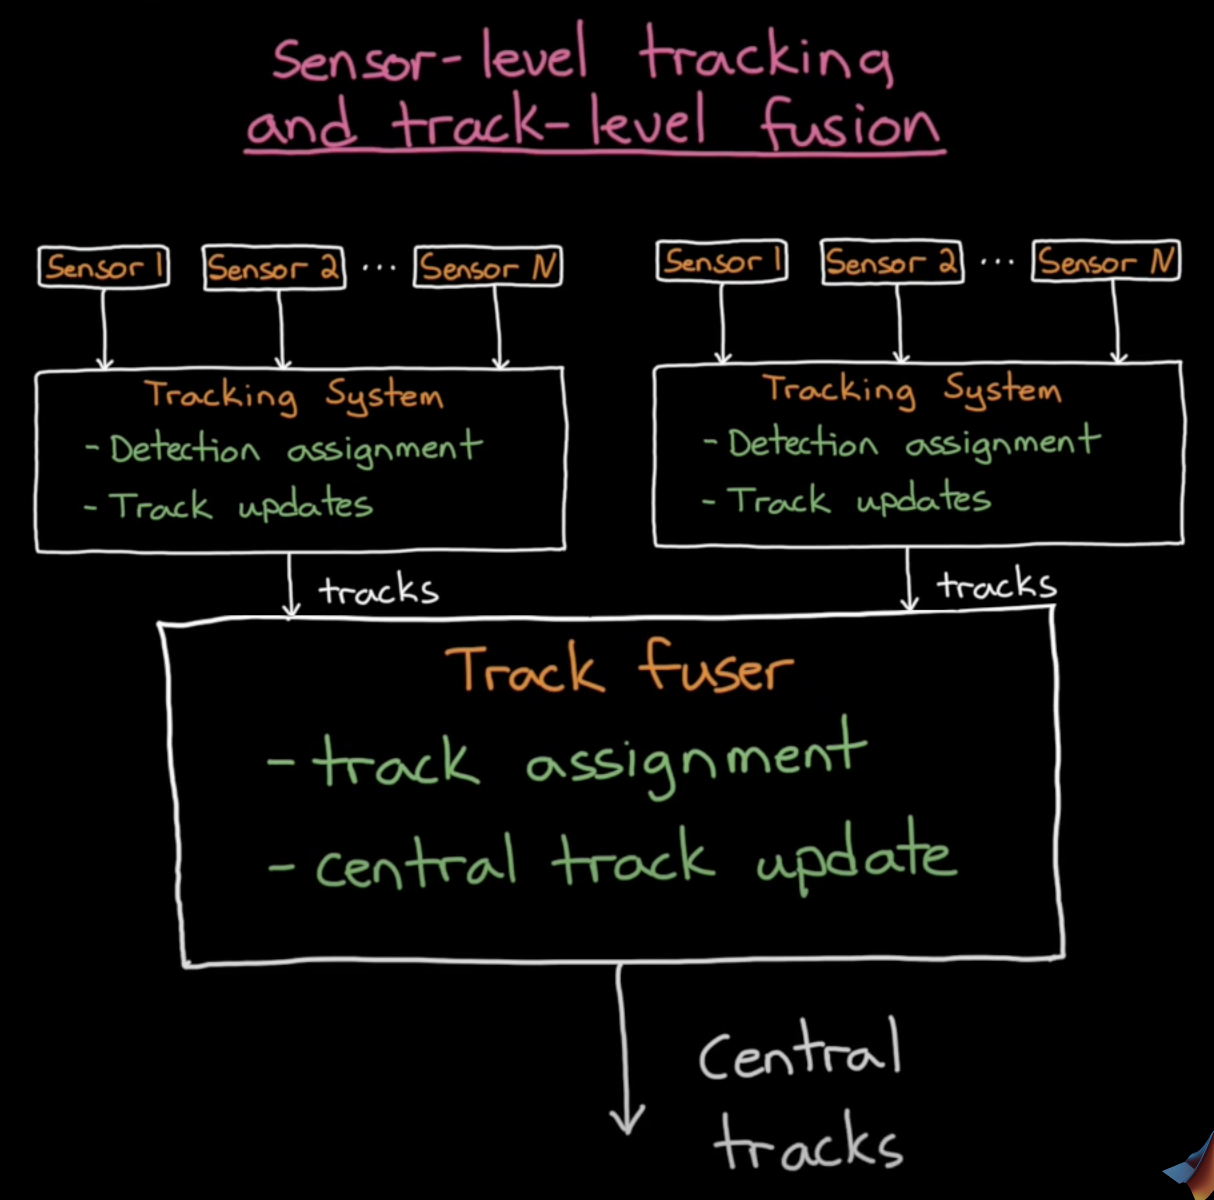 Sensor-level tracking
and track-level fusion
Sensor 1
Sensor 2
...
Sensor N
Tracking System
- Detection assignment
- Track updates
tracks
Sensor 1
Sensor 2
...
Sensor N
Tracking System
- Detection assignment
- Track updates
tracks
Track fuser
- track assignment
- central track update
Central
tracks